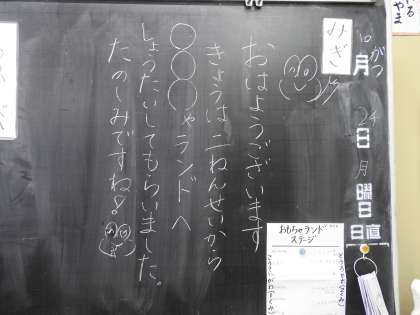 10月がつ
24日
月曜日
日直
みぎ
おはようございます
きょうは二ねんせいから
〇〇〇ゃランドへ
しょうたいしてもらいました。
たのしみですね!
おもちゃランド
ステージ